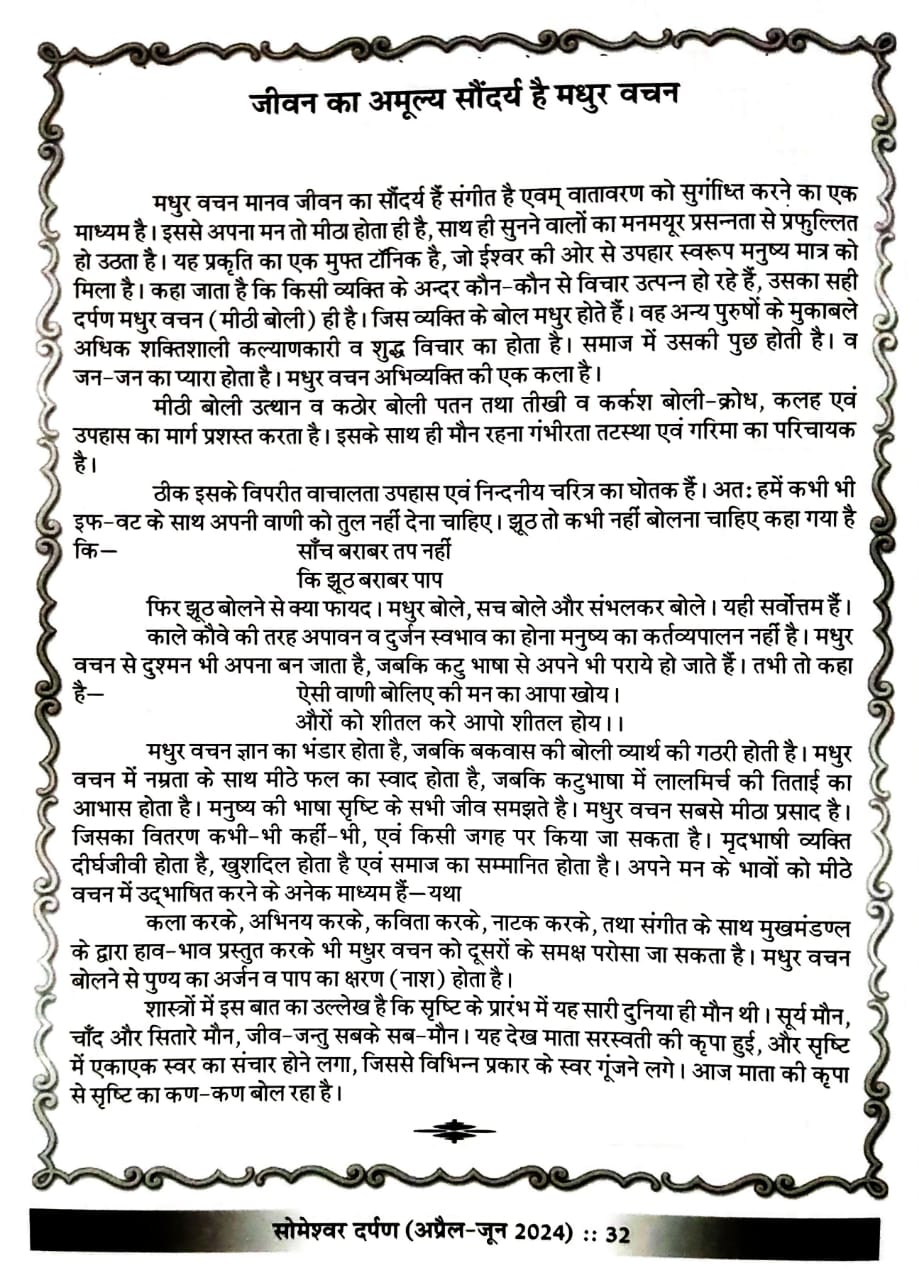 जीवन का अमूल्य सौंदर्य है मधुर वचन
मधुर वचन मानव जीवन का सौंदर्य हैं संगीत है एवम् वातावरण को सुगंध्ति करने का एक
माध्यम है। इससे अपना मन तो मीठा होता ही है, साथ ही सुनने वालों का मनमयूर प्रसन्नता से प्रफुल्लित
हो उठता है। यह प्रकृति का एक मुफ्त टॉनिक है, जो ईश्वर की ओर से उपहार स्वरूप मनुष्य मात्र को
मिला है। कहा जाता है कि किसी व्यक्ति के अन्दर कौन-कौन से विचार उत्पन्न हो रहे हैं, उसका सही
दर्पण मधुर वचन (मीठी बोली) ही है। जिस व्यक्ति के बोल मधुर होते हैं। वह अन्य पुरुषों के मुकाबले
अधिक शक्तिशाली कल्याणकारी व शुद्ध विचार का होता है। समाज में उसकी पुछ होती है। व
जन-जन का प्यारा होता है। मधुर वचन अभिव्यक्ति की एक कला है।
मीठी बोली उत्थान व कठोर बोली पतन तथा तीखी व कर्कश बोली-क्रोध, कलह एवं
उपहास का मार्ग प्रशस्त करता है। इसके साथ ही मौन रहना गंभीरता तटस्था एवं गरिमा का परिचायक
है।
ठीक इसके विपरीत वाचालता उपहास एवं निन्दनीय चरित्र का घोतक हैं। अतः हमें कभी भी
इफ-वट के साथ अपनी वाणी को तुल नहीं देना चाहिए। झूठ तो कभी नहीं बोलना चाहिए कहा गया है
कि— साँच बराबर तप नहीं
कि झूठ बराबर पाप
फिर झूठ बोलने से क्या फायद। मधुर बोले, सच बोले और संभलकर बोले। यही सर्वोत्तम हैं।
काले कौवे की तरह अपावन व दुर्जन स्वभाव का होना मनुष्य का कर्तव्यपालन नहीं है। मधुर
वचन से दुश्मन भी अपना बन जाता है, जबकि कटु भाषा से अपने भी पराये हो जाते हैं। तभी तो कहा
है— ऐसी वाणी बोलिए की मन का आपा खोय।
औरों को शीतल करे आपो शीतल होय।।
मधुर वचन ज्ञान का भंडार होता है, जबकि बकवास की बोली व्यार्थ की गठरी होती है। मधुर
वचन में नम्रता के साथ मीठे फल का स्वाद होता है, जबकि कटुभाषा में लालमिर्च की तिताई का
आभास होता है। मनुष्य की भाषा सृष्टि के सभी जीव समझते है। मधुर वचन सबसे मीठा प्रसाद है।
जिसका वितरण कभी-भी कहीं-भी, एवं किसी जगह पर किया जा सकता है। मृदभाषी व्यक्ति
दीर्घजीवी होता है, खुशदिल होता है एवं समाज का सम्मानित होता है। अपने मन के भावों को मीठे
वचन में उद्‌भाषित करने के अनेक माध्यम हैं—यथा
कला करके, अभिनय करके, कविता करके, नाटक करके, तथा संगीत के साथ मुखमंडण्ल
के द्वारा हाव-भाव प्रस्तुत करके भी मधुर वचन को दूसरों के समक्ष परोसा जा सकता है। मधुर वचन
बोलने से पुण्य का अर्जन व पाप का क्षरण (नाश) होता है।
शास्त्रों में इस बात का उल्लेख है कि सृष्टि के प्रारंभ में यह सारी दुनिया ही मौन थी। सूर्य मौन,
चाँद और सितारे मौन, जीव-जन्तु सबके सब-मौन। यह देख माता सरस्वती की कृपा हुई, और सृष्टि
में एकाएक स्वर का संचार होने लगा, जिससे विभिन्न प्रकार के स्वर गूंजने लगे। आज माता की कृपा
से सृष्टि का कण-कण बोल रहा है।
सोमेश्वर दर्पण (अप्रैल-जून 2024) :: 32